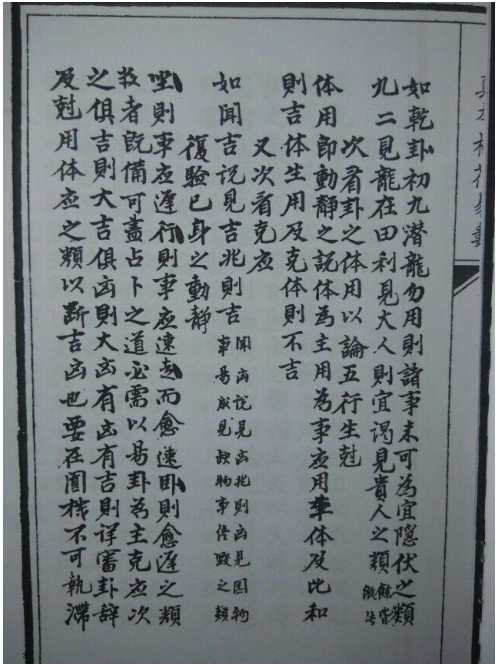 如乾卦初九潛龍勿用則諸事未可為宜隱伏之類
九二見龍在田利見大人則宜謁見貴人之類
餘皆
倣此
次看卦之体用以論五行生尅
体用即動靜之説体為主用為事应用体及比和
則吉体生用及克体則不吉
又次看克应
如聞吉説見吉兆則吉
聞凶説見凶兆則凶見圓物
事易成見缺物事終毀之類
復驗已身之動靜
坐則事应遲行則事应速走而愈速卧則愈遲之類
数者既備可盡占卜之道必需以易卦為主克应次
之俱吉則大吉俱凶則大凶有凶有吉則详審卦辞
及尅用体应之類以斷吉凶也要在圓機不可執滯